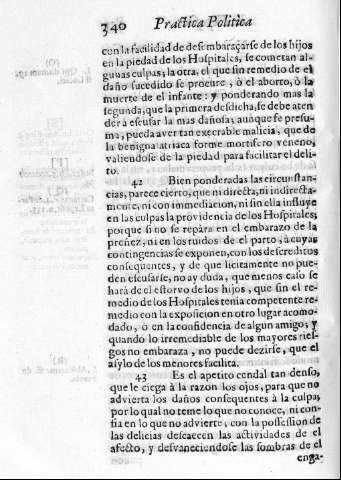 340 Practica Politica
con la facilidad de desembaraçarse de los hijos
en la piedad de los Hospitales, se cometan al-
gunas culpas; la otra, el que sin remedio de el
daño sucedido se procure, ò el aborto, ò la
muerte de el infante: y ponderando mas la
segunda, que la primera desdicha, se debe aten-
der a escusar la mas dañosa; aunque se presu-
ma, pueda aver tan execrable malicia, que de
la benigna atriaca forme mortifero veneno,
valiendose de la piedad para facilitar el deli-
to.
42 Bien ponderadas las circunstan-
cias, parece cierto, que ni directa, ni indirecta-
mente, ni con immediacion, ni sin ella influye
en las culpas la providencia de los Hospitales;
porque si no se repàra en el embarazo de la
preñez, ni en los ruidos de el parto, à cuyas
contingencias se exponen, con los descreditos
consequentes, y de que licitamente no pue-
den escusarse, no ay duda, que menos caso se
harà de el estorvo de los hijos, que sin el re-
medio de los Hospitales tenia competente re-
medio con la exposicion en otro lugar acomo-
dado, ò en la confidencia de algun amigo; y
quando lo irremediable de los mayores ries-
gos no embaraza, no puede dezirse, que el
asylo de los menores facilita.
43 Es el apetito cendal tan denso,
que le ciega à la razon los ojos, para que no
advierta los daños consequentes à la culpa,
por lo qual no teme lo que no conoce, ni con-
fia en lo que no advierte, con la possession de
las delicias descaecen las actividades de el
afecto, y desvaneciendose las sombras de el
enga-